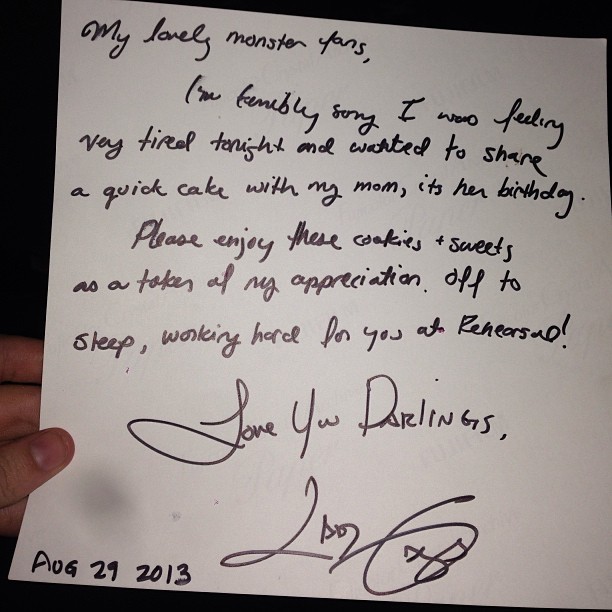 My lovely monster fans,
I'm terribly sorry I was feeling
very tired tonight and wanted to share
a quick cake with my mom, its her birthday.
Please enjoy these cookies + sweets
as a token of my appreciation. Off to
sleep, working hard for you at Rehearsal!
Love You Darlings,
Lady
AUG 29 2013